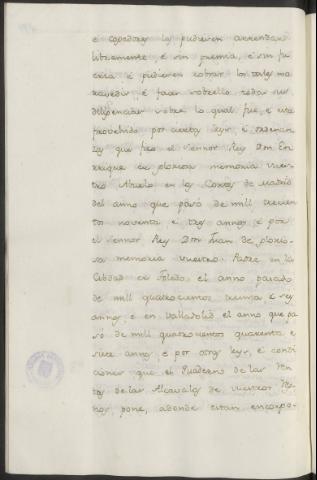 é cogedores las pudieren arrendar
libremente, é sin premia, é sin fu
erza é pudieren cobrar los tales ma
ravedis, é facer sobrello todas sus
diligencias sobre lo qual fue, é está
provehido por ciertas leyes, é ordenan
zas que fizo el Sennor Rey Don En
rrique de gloriosa memoria vues
tro Abuelo en las Cortes de Madrid
del anno que pasó de mill trecien
tos noventa é tres annos, é por
el Sennor Rey Don Juan de glorio
sa memoria vuestro Padre en la
Cibdad de Toledo, el anno pasado
de mill quatrocientos treinta é seys
annos é en Valladolid el anno que pa
só de mill quatrocientos quarenta é
siete annos, é por otras leyes, é condi
ciones que el Quaderno de las Ren
tas de las Alcavalas de vuestros Rey
nos pone, adonde estan encorpo-